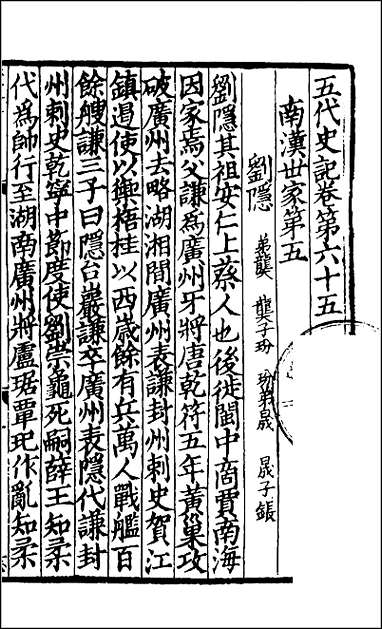 五代史記卷第六十五
南漢世家第五
劉隱 弟龑 龑子玢 玢弟晟 晟子鋹
劉隱其祖安仁上蔡人也後徙閩中商賈南海
因家焉父謙爲廣州牙將唐乾符五年黃巢攻
破廣州去略湖湘間廣州表謙封州刺史賀江
鎮遏使以禦梧桂以西歲餘有兵萬人戰艦百
餘艘謙三子曰隱台巖謙卒廣州表隱代謙封
州刺史乾寧中節度使劉崇龜死嗣薛王知柔
代爲帥行至湖南廣州將盧琚覃玘作亂知柔